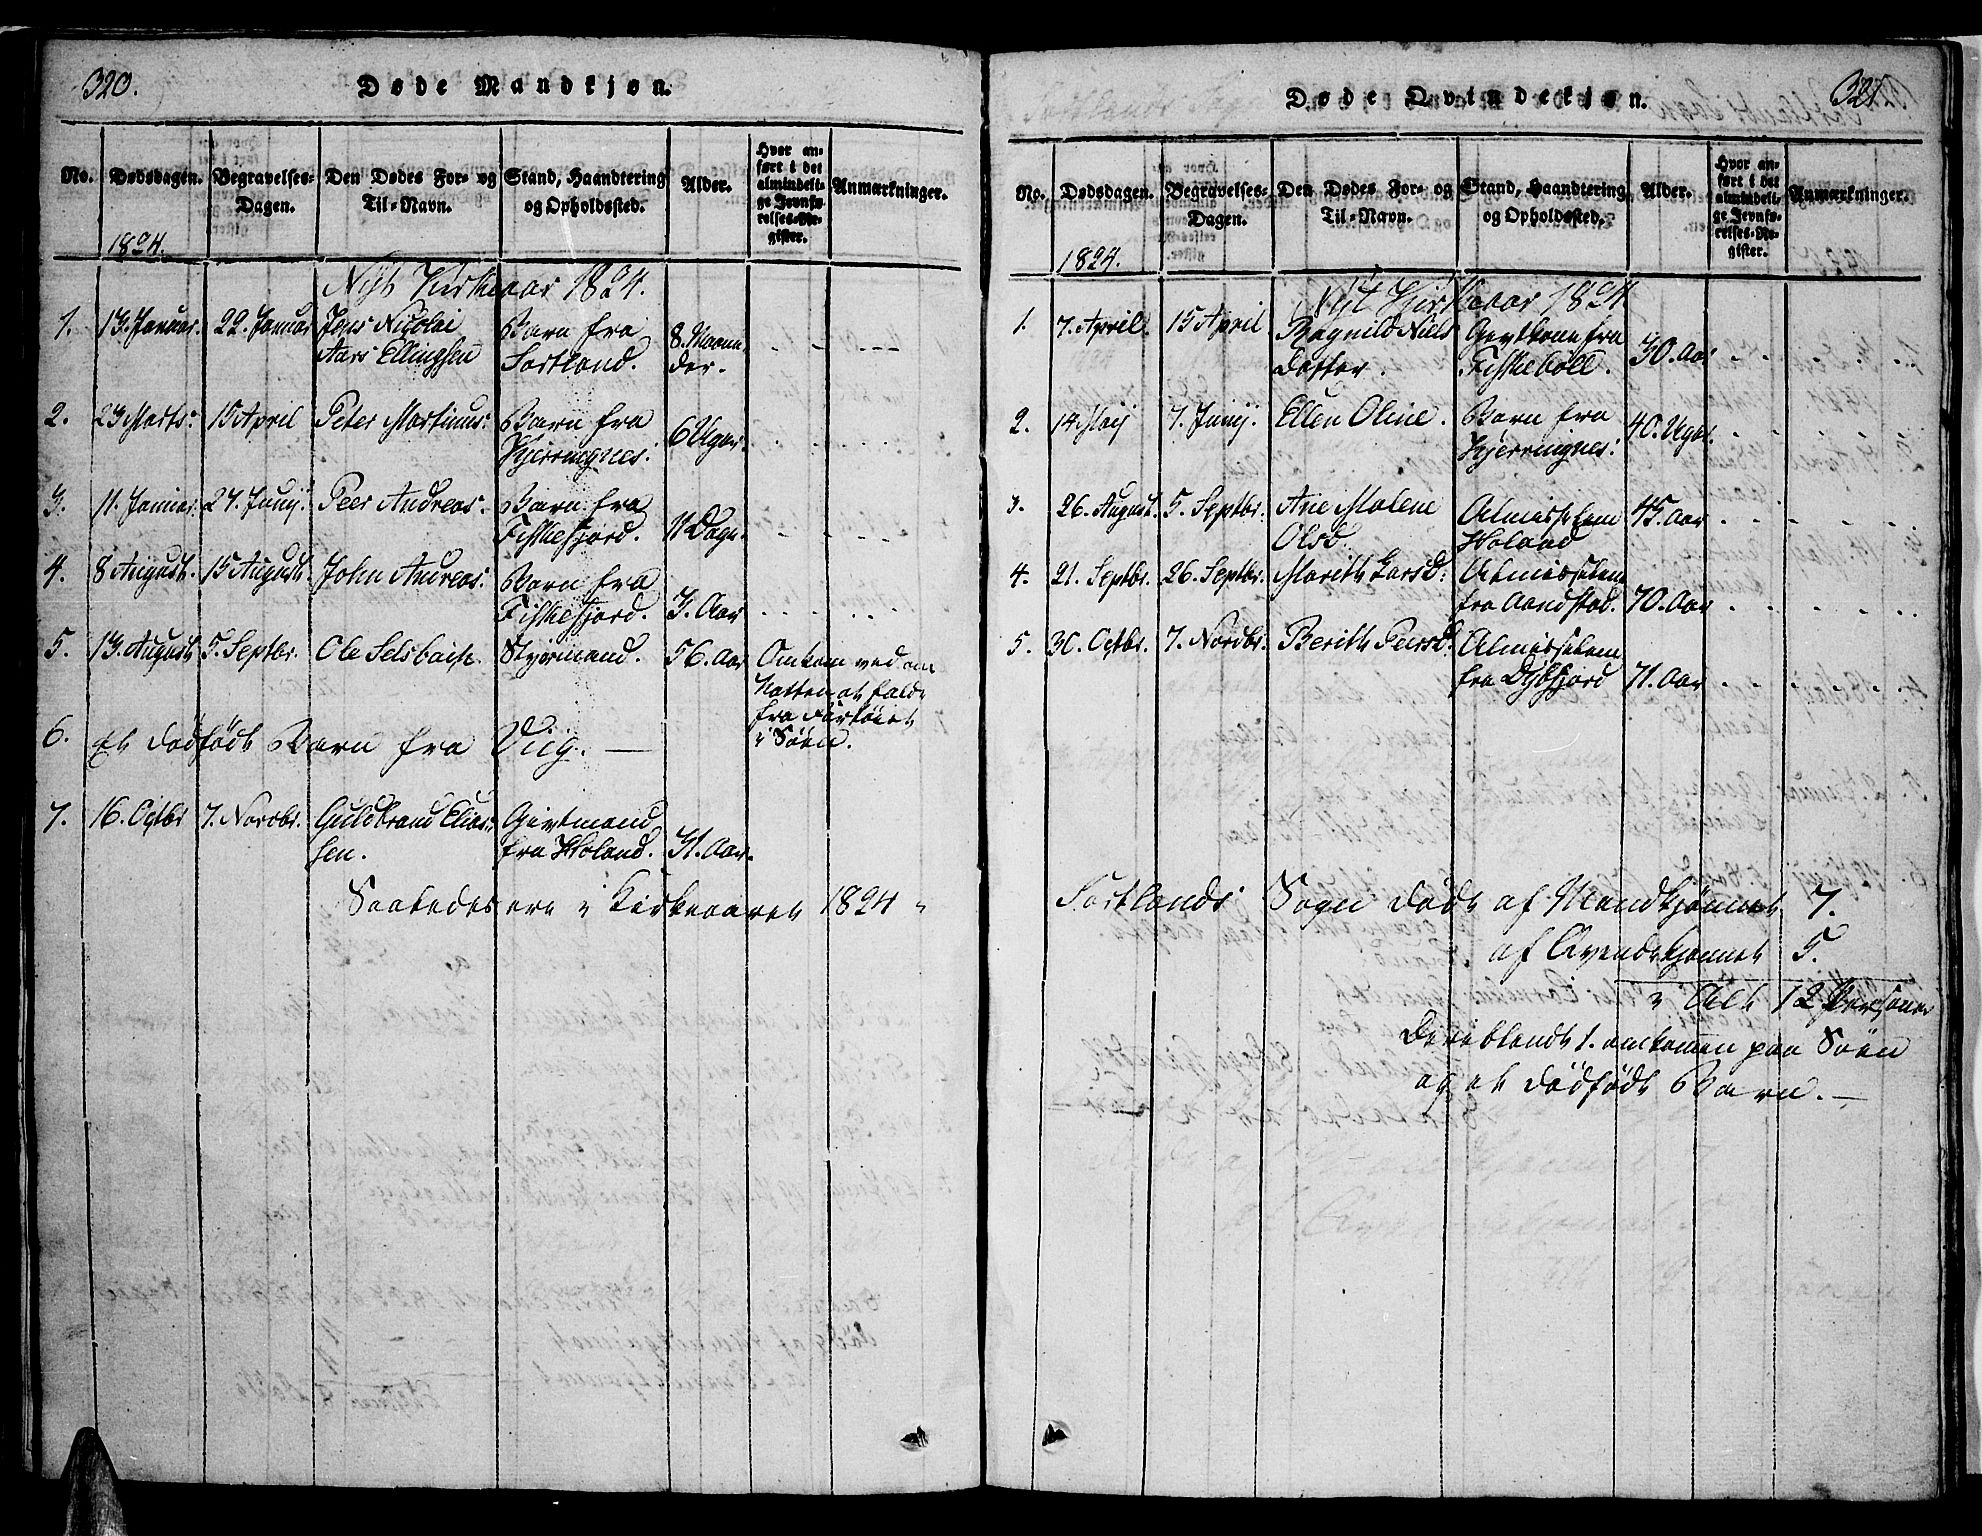 320.
Døde Mandkjøn.
No. Dødsdagen. Begravelses-Dagen. Den Dødes For- og Til-Navn. Stand, Haandtering og Opholdssted. Alder. Hvor anført i det almindelige Jevnførelses-Register. Anmærkninger.
1824.
Nyt Kirkeaar 1824.
1. 13. Januar. 22. Januar Jens Nicolai Barn fra 8. Maane
Aars Ellingsen Sortland. der.
2. 23 Marts: 15 April Peter Martinus: Barn fra
Kjerringnes. 6 Uger.
3. 11. Januar. 27. Junij. Peer Andreas. Barn fra
Fiskefjord. 11 Dage.
4. 8 August. 15 August. John Andreas. Barn fra
Fiskefjord. 3. Aar
5. 13. August 5. Septbr. Ole Selsbach. Styrmand. 56. Aar Omkom ved om
Natten at falde
fra Fartøiet
i Søen.
6. Et dødfødt Barn fra Viig. —
7. 16. Octbr 7. Novbr. Guldbrand Elias- Givtmand
sen. fra Holand. 31. Aar.
Saaledes ere i Kirkeaaret 1824
321
Døde Qvindekjøn.
No. Dødsdagen. Begravelses-Dagen. Den Dødes For- og Til-Navn. Stand, Haandtering og Opholdssted. Alder. Hvor anført i det almindelige Jevnførelses-Register. Anmærkninger.
1824.
Nyt Kirkeaar 1824
1. 7. April. 15 April Ragnild Niels Givtkone fra
Datter. Fiskebøll. 30. Aar
2. 14 Maij 7. Junij. Ellen Oline. Barn fra
Kjerringnes: 40. Uger.
3. 26. August. 5. Septbr. Ane Malene Almisselem
Olsd. Holand 45. Aar
4. 21. Septbr. 26. Septbr. Marith Larsd: Almisselem
fra Aandstad. 70. Aar
5. 30. Octbr. 7. Novbr. Berith Peersd: Almisselem
fra Dybfjord 71. Aar
Sortlands Sogn døde af Mandkjønnet 7.
af Qvindekjønnet 5.
i Alt 12 Personer
Deriblandt 1. omkomen paa Søen
og et dødfødt Barn. —